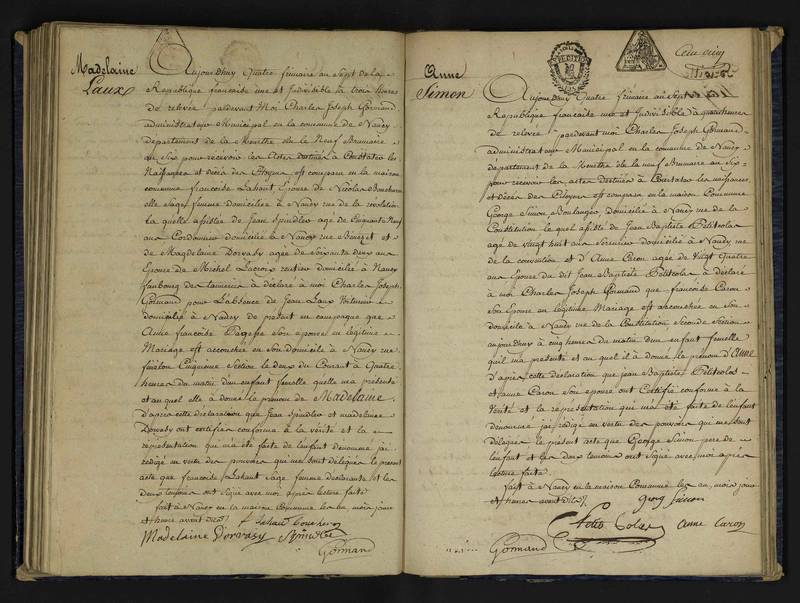 Madelaine
Laux
Aujourdhuy Quatre frimaire an Sept de la
Republique francaise une et Indivisible à trois heures
de relevée pardevant Moi Charles Joseph Gormand
administrateur Municipal en la commune de Nancy
departement de la Meurthe élu le Neuf Brumaire
an Six pour recevoir les Actes destinés à Constater les
Naissances et décès des Citoyens est comparu en la maison
commune francoise Lahaut Epouse de Nicolas
elle Sage femme domiciliée à Nancy rue de la revolution
La quelle assistée de Jean Spindler agé de Cinquante Neuf
ans Cordonnier domicilié à Nancy rue et
de Magdelaine Dorvasy agée de Soixante deux ans
Epouse de Michel Lacroix rentier domicilié à Nancy
faubourg des a déclaré à moi Charles Joseph
Gormand pour Labsence de Jean Laux Voiturier
domicilié à Nancy de present en campagne que
Anne francoise Son epouse en legitime
Mariage est accouchée en Son domicile à Nancy rue
fénélon Cinquieme Section le deux du Courant à Quatre
heures du matin d'un enfant femelle quelle ma présenté
et au quel elle a donné le prénom de Madelaine.
d'apres cette déclaration que Jean Spindler et madelaine
Dorvasy ont certifiée conforme à la vérité et la
représentation qui m'a été faite de lenfant dénommé jai
rédigé en vertu des pouvoirs qui me sont délégués le présent
acte que francoise Lahaut Sage femme déclarante et les
deux témoins ont Signé avec moi après lecture faite
fait à Nancy en la maison Commune les an, mois jour
et heure avant dits
f Lahaut
Madelaine Dorvasy
Gormand
Anne
Simon
Aujourdhuy Quatre frimaire an Sept
Republique francaise une et Indivisible à quatre heures
de relevée pardevant moi Charles Joseph Gormand
administrateur Municipal en la commune de Nancy
département de la Meurthe élu le neuf Brumaire an Six
pour recevoir les actes destinés à Constater les naissances
et Décès des Citoyens est comparu en la maison Commune
George Simon Boulanger domicilié à Nancy rue de la
Constitution le quel assisté de Jean Baptiste Petitcolas
agé de vingt huit ans Serrurier domicilié à Nancy rue
de la convention et d'Anne Caron agée de Vingt Quatre
ans épouse du dit Jean Baptiste Petitcolas a déclaré
à moi Charles Joseph Gormand que francoise Caron
Son épouse en legitime Mariage est accouchée en Son
domicile à Nancy rue de la Constitution Seconde Section
aujourdhuy à cinq heures du matin d'un enfant femelle
quil ma présenté et au quel il a donné le prénom d'Anne
d'après cette déclaration que jean Baptiste Petitcolas
et anne Caron Son epouse ont Certifié conforme à la
Vérité et la représentation qui ma été faite de lenfant
dénommé jai rédigé en vertu des pouvoirs qui me sont
délégués le présent acte que George Simon pere de
lenfant et les deux temoins ont Signé avec moi après
lecture faite
fait à Nancy en la maison Commune les an, mois jour
et heure avant dits
Georg Simon
Petit Colas
anne caron
Gormand